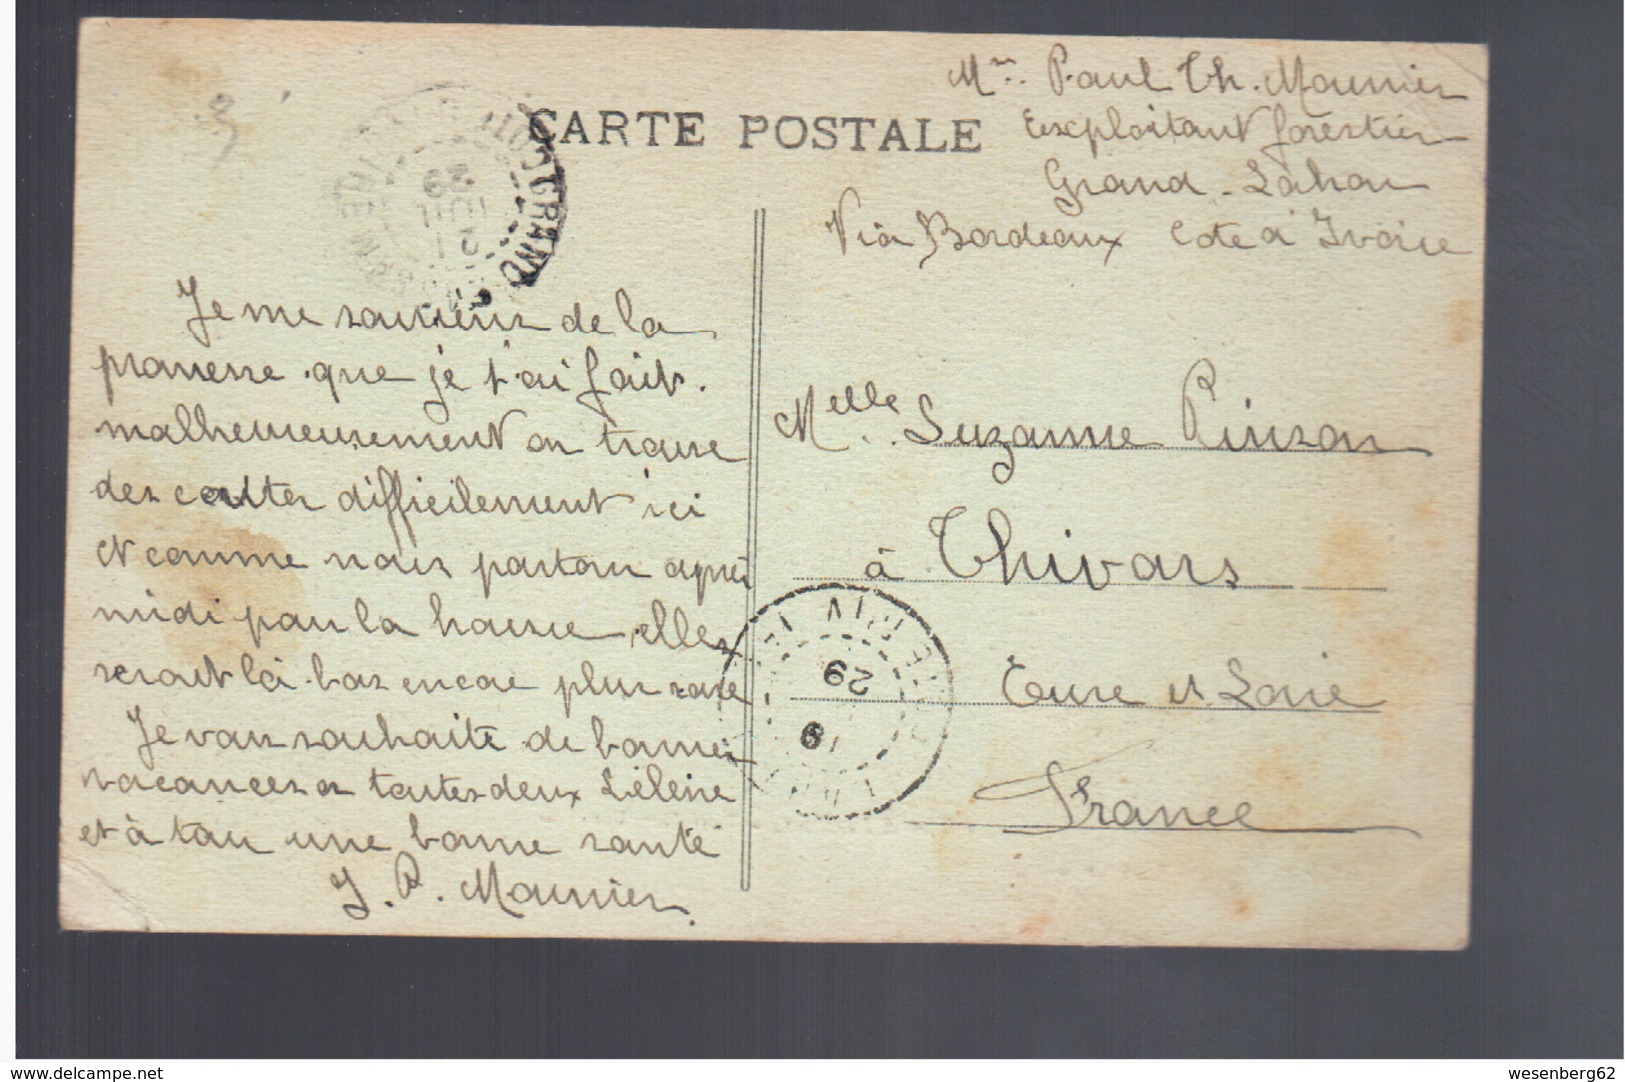 Mr. Paul Th. Mounier
CARTE POSTALE
Exploitant forestier
Grand-Lahou
Via Bordeaux Cote d'Ivoire
GRAND
Je me souviens de la
promesse que je t'ai fait.
malheureusement on trouve
des cartes difficilement ici
et comme nous parton après
midi pour la brousse, elles
serait là-bas encore plus rare
Je vous souhaite de bonnes
vacances a toutes deux Hélène
et à tou une bonne santé
J. P. Mounier
Melle Suzanne Pinson
à Thivars
Eure et Loire
France
29
9
delcampe.net
wesenberg62